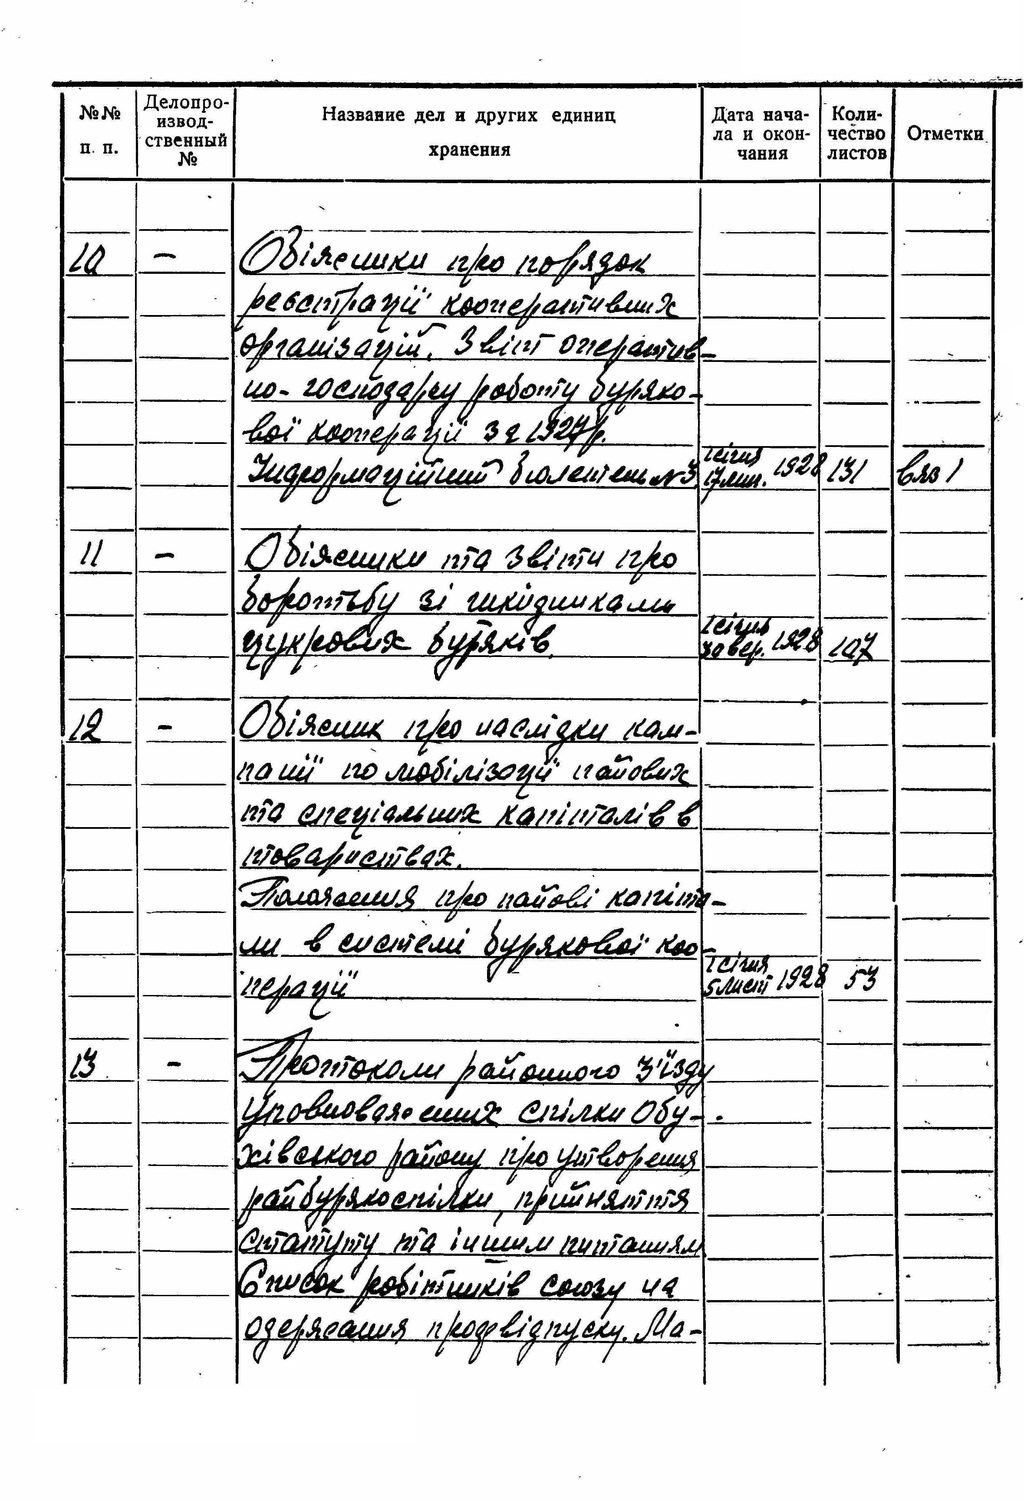 №№ п. п. Делопро-извод-ственный № Название дел и других единиц хранения Дата нача-ла и окон-чания Коли-чество листов Отметки
10 — Обіжники про порядок
реєстрації кооперативних
організацій. Звіт оператив-
но-господарску роботу буряко-
вої кооперації за 1927р.
Інформаційний бюлетень №3. 1 січня 17 лип. 1928 131
11 — Обіжники та звіти про
боротьбу зі шкідниками
цукрових буряків. 1 січня 30 вер. 1928 107
12 — Обіжник про наслідки кам-
панії по мобілізації пайових
та спеціальних капіталів в
товариствах.
Положення про пайові капіта-
ли в системі бурякової коо-
перації 1 січня 5 лист 1928 53
13 — Протоколи районного з'їзду
уповноважених спілки Обу-
хівського району про утворення
райбурякоспілки, прийняття
статуту та іншим питанням
Список робітників союзу на
одержання продвідпуску. Ма-